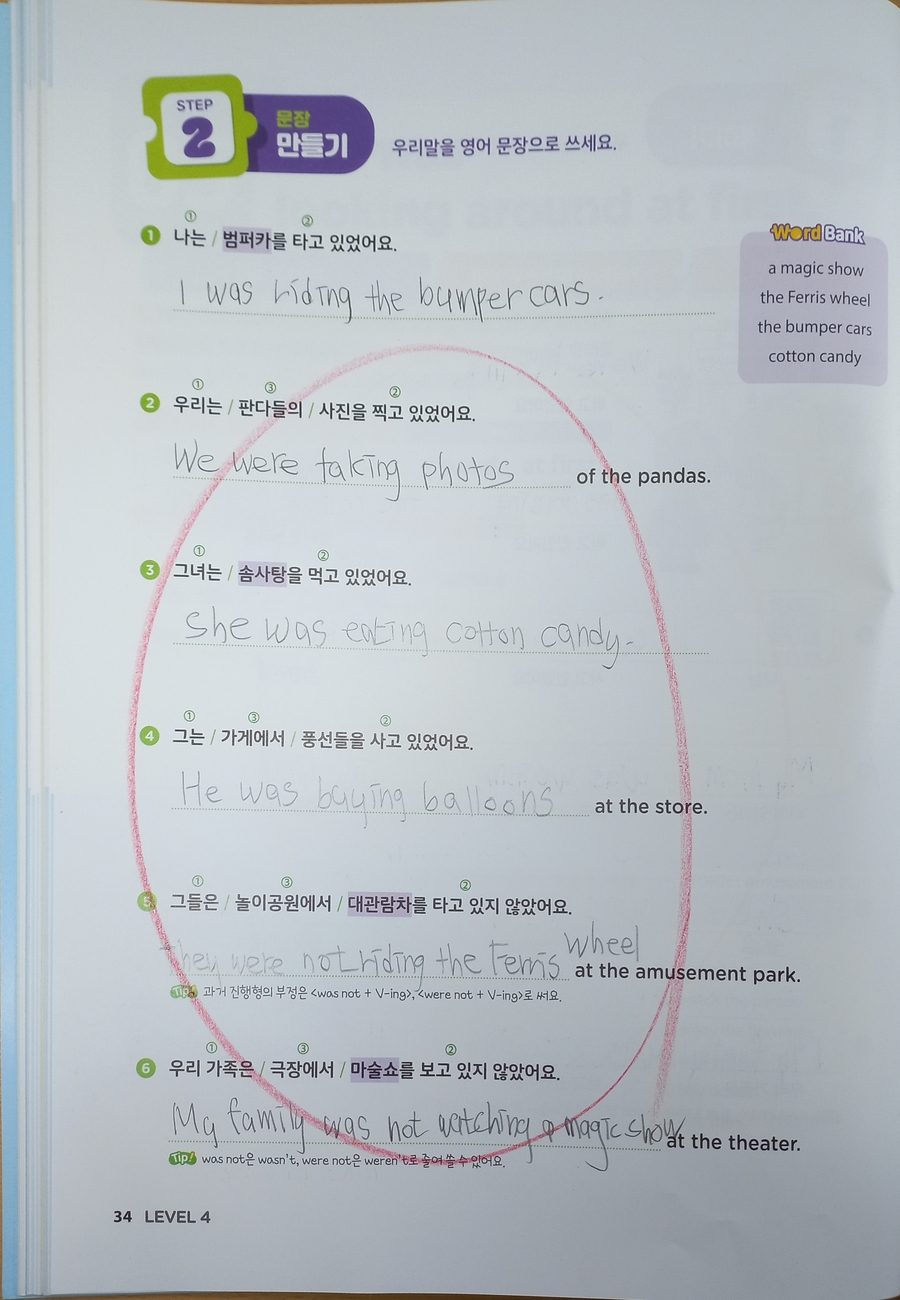 STEP
2
문장
만들기
우리말을 영어 문장으로 쓰세요.
① ②
1 나는 / 범퍼카를 타고 있었어요.
I was riding the bumper cars.
Word Bank
a magic show
the Ferris wheel
the bumper cars
cotton candy
① ③ ②
2 우리는 / 판다들의 / 사진을 찍고 있었어요.
We were taking photos of the pandas.
① ②
3 그녀는 / 솜사탕을 먹고 있었어요.
She was eating cotton candy.
① ③ ②
4 그는 / 가게에서 / 풍선들을 사고 있었어요.
He was buying balloons at the store.
① ③ ②
5 그들은 / 놀이공원에서 / 대관람차를 타고 있지 않았어요.
They were not riding the Ferris wheel at the amusement park.
Tip! 과거 진행형의 부정은 <was not + V-ing>, <were not + V-ing>로 써요.
① ③ ②
6 우리 가족은 / 극장에서 / 마술쇼를 보고 있지 않았어요.
My family was not watching a magic show at the theater.
Tip! was not은 wasn't, were not은 weren't로 줄여 쓸 수 있어요.
34 LEVEL 4